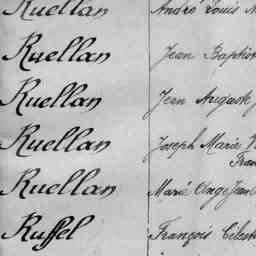 Ruellan André Louis
Ruellan Jean Baptist
Ruellan Jean Auguste
Ruellan Joseph Marie
Fran
Ruellan Marie Ange Jean
Ruffel François Célest